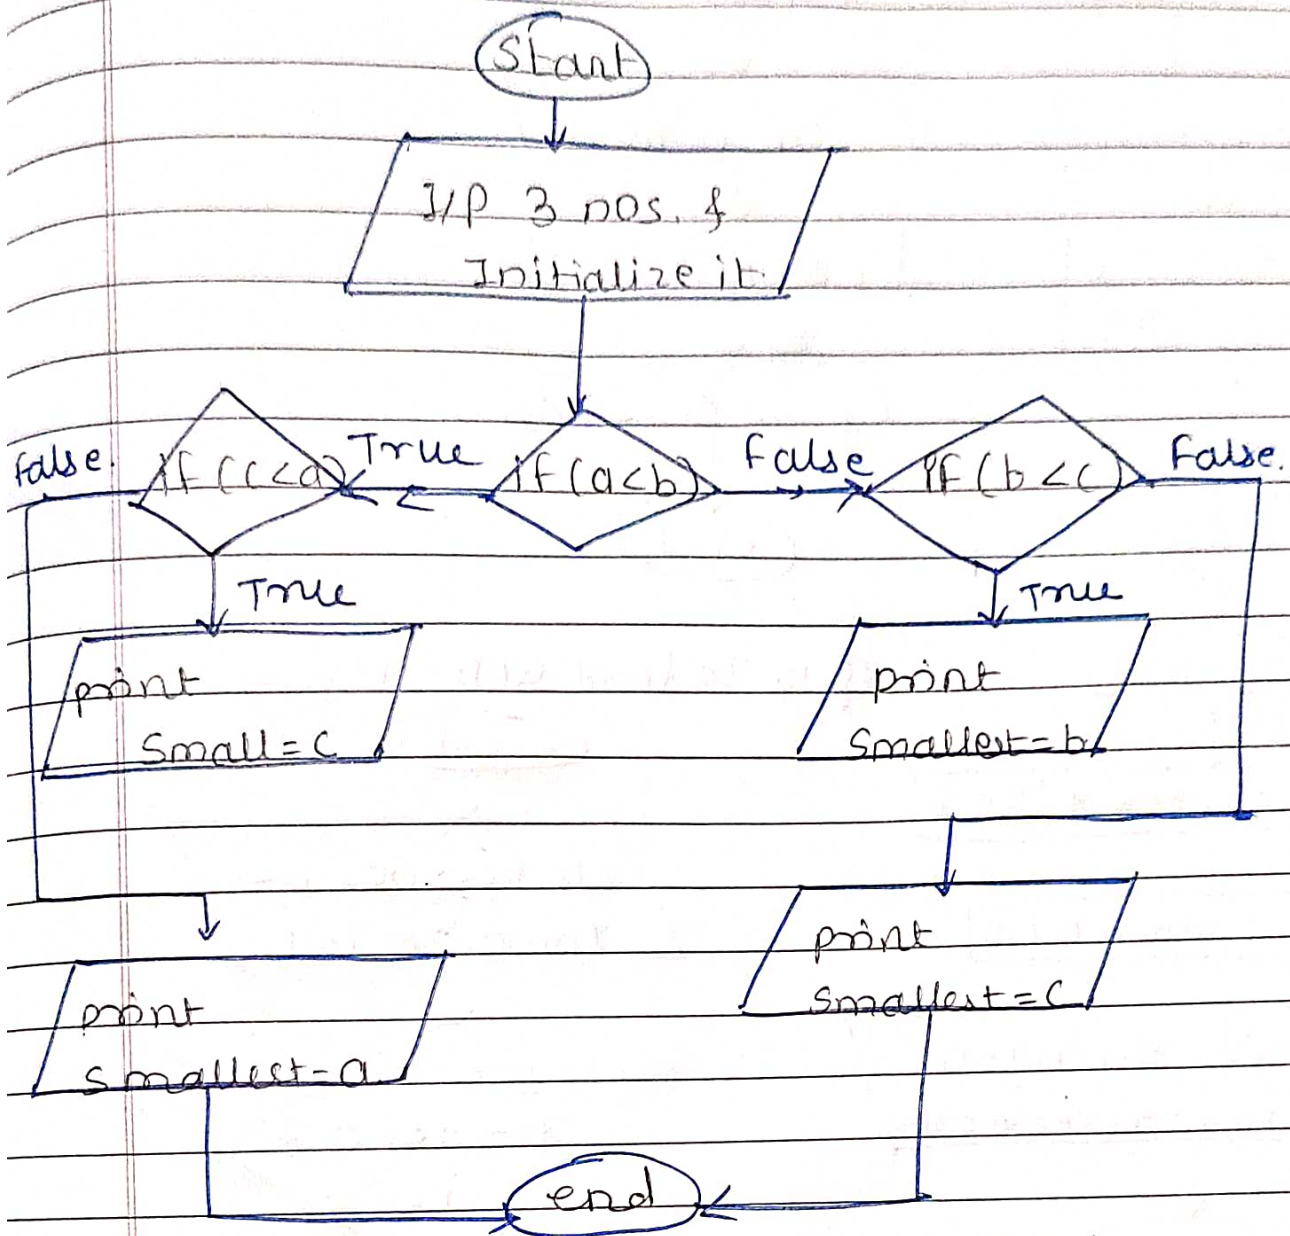 Start
I/P 3 nos. &
Initialize it.
False.
if (c<a)
True
if (a<b)
False
if (b<c)
False.
True
True
print
Small = c
print
Smallest = b
print
smallest = c
print
smallest - a
end